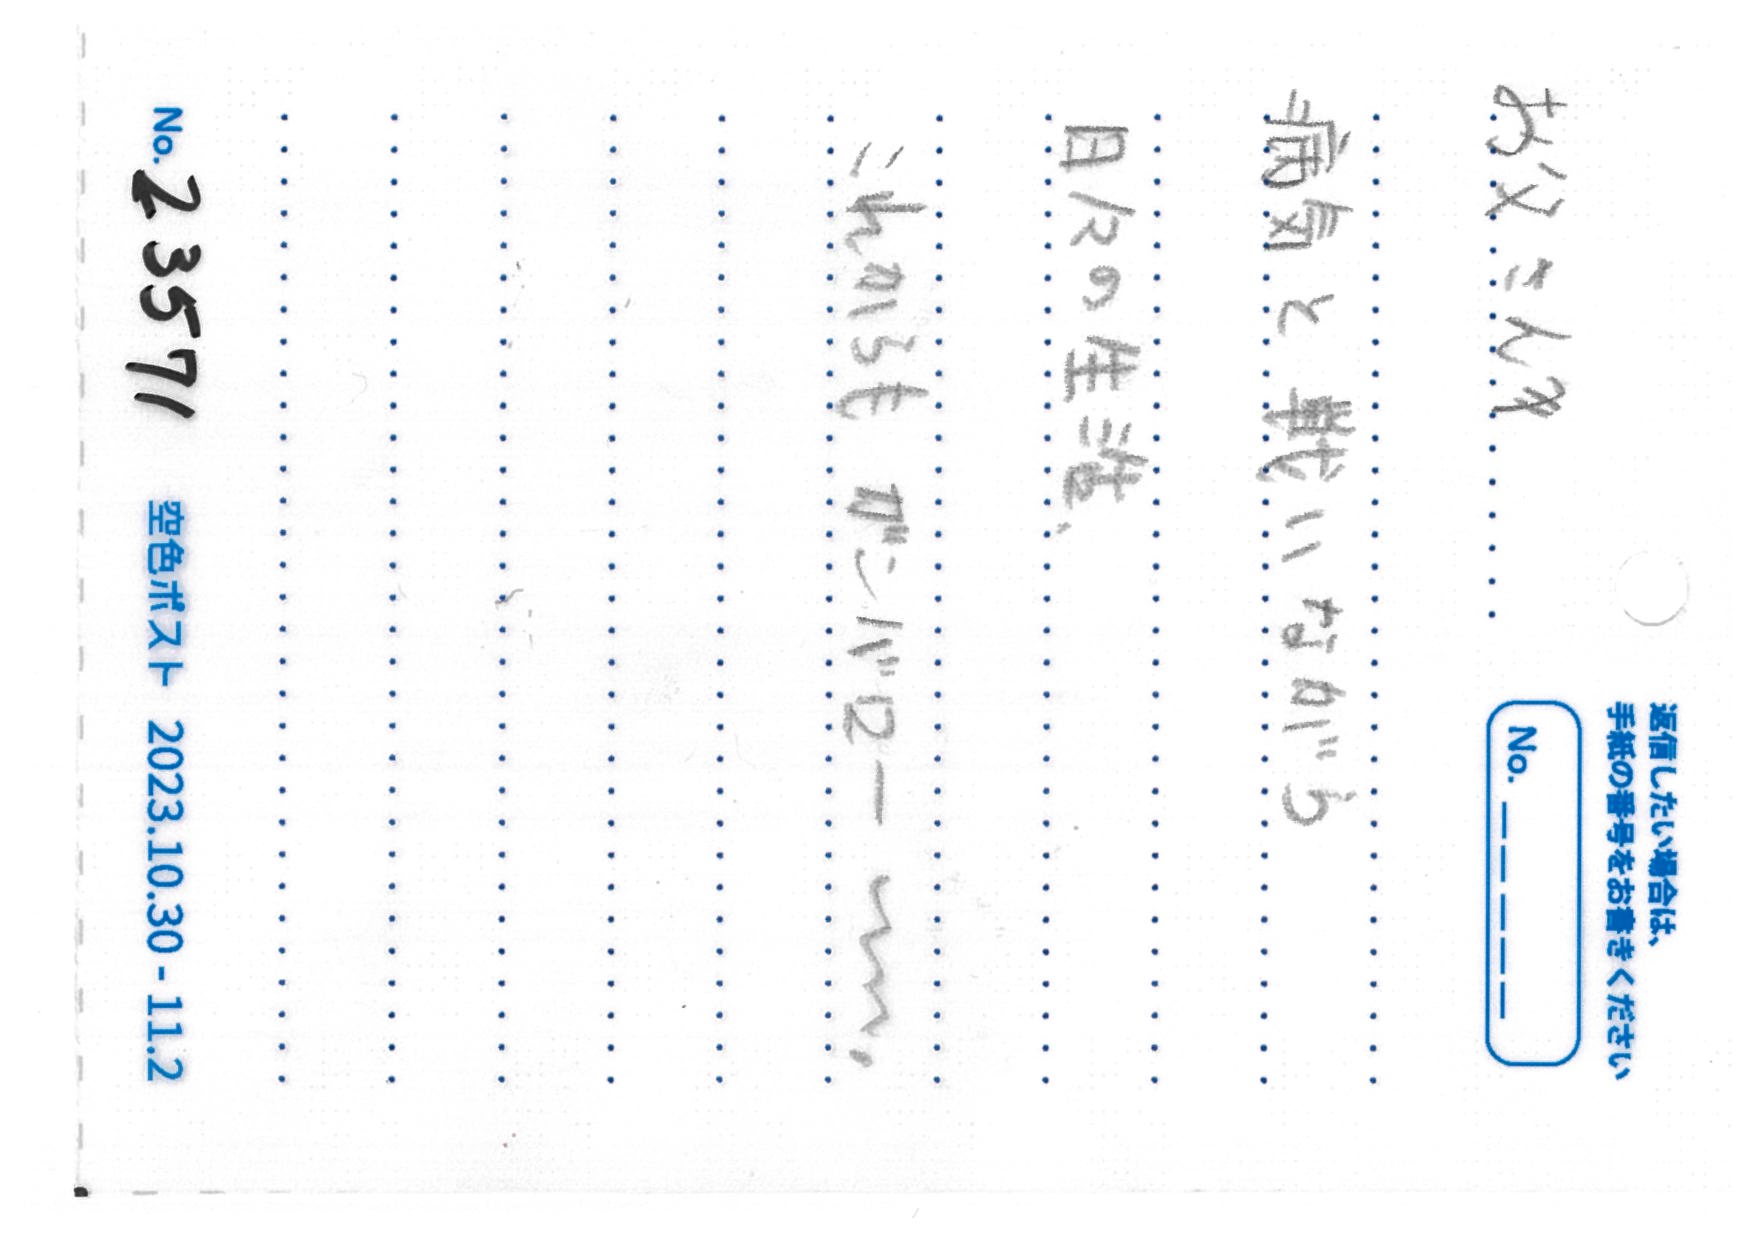 返信したい場合は、
手紙の番号をお書きください
No.
お父さん
病気と戦いながら
日々の生活、
これからも ガンバロー 〜〜〜。
No. 23571 空色ポスト 2023.10.30 - 11.2